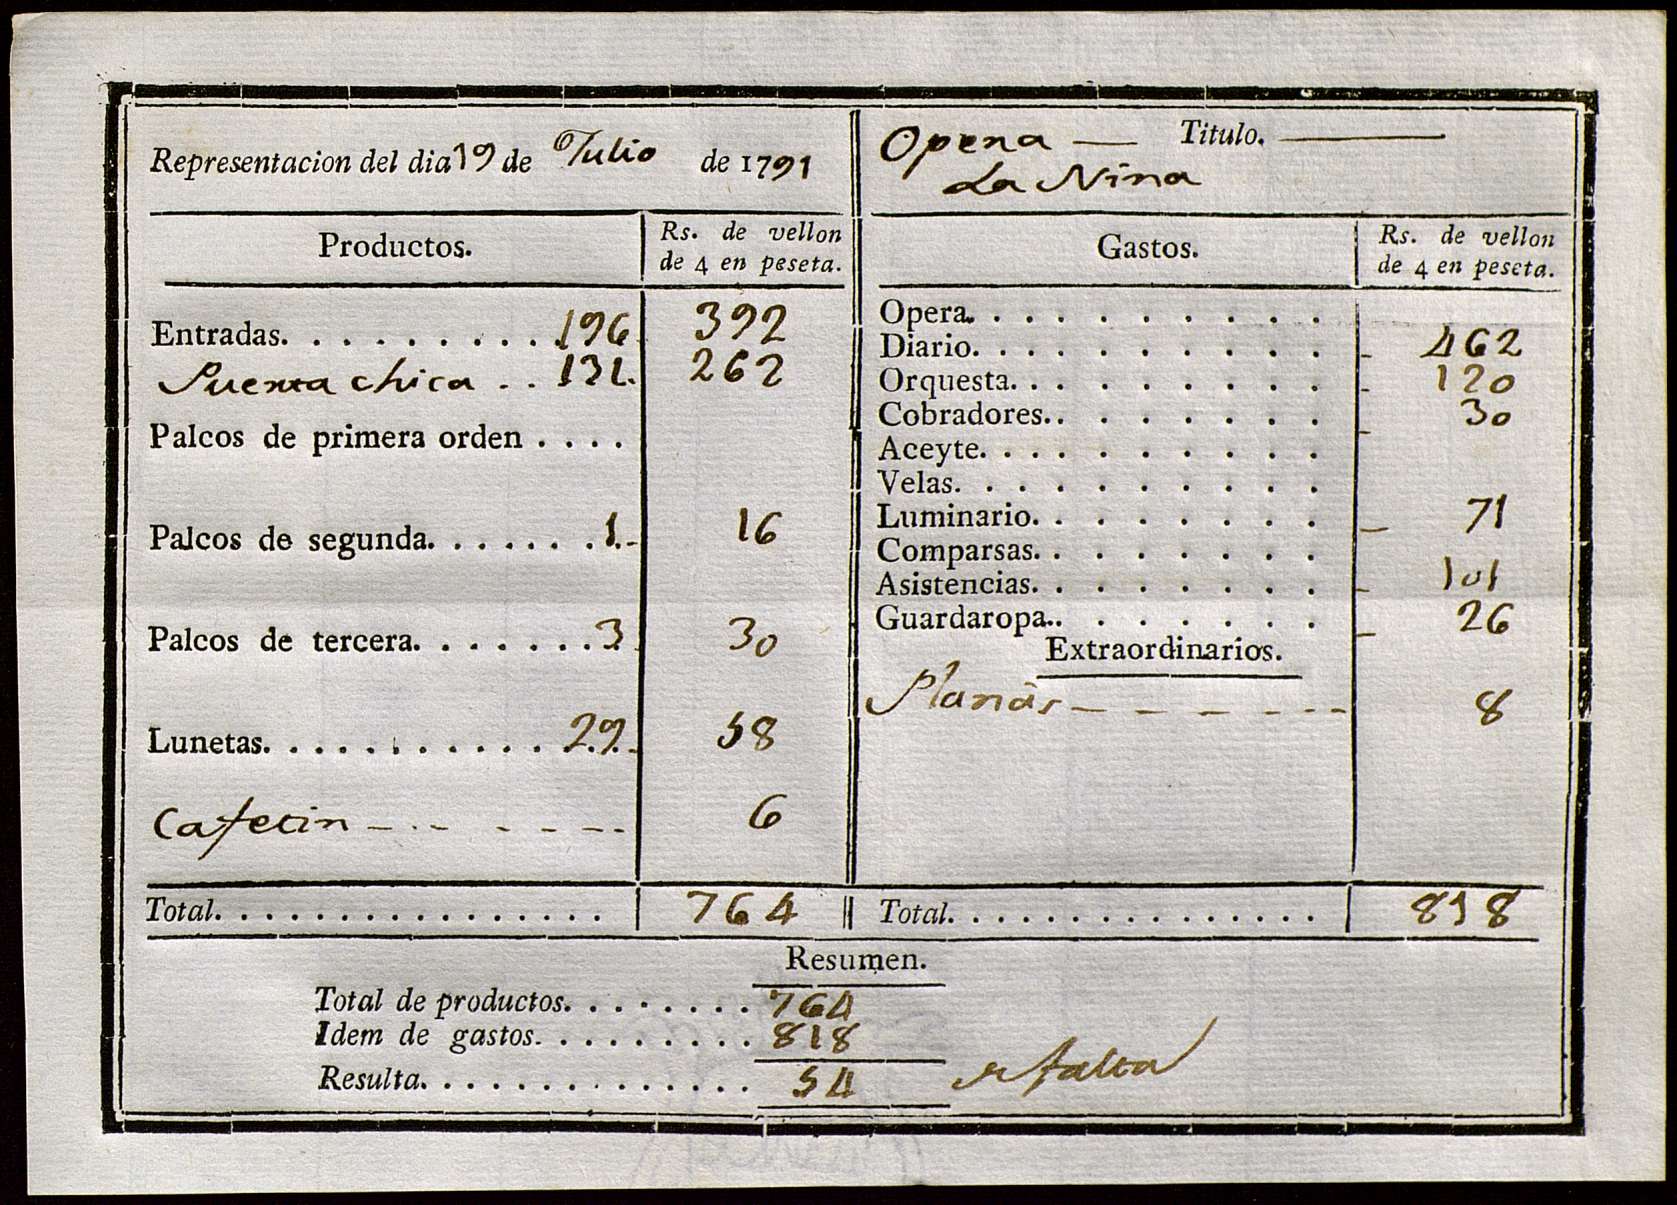 Representacion del dia 19 de Julio de 1791
Productos. Rs. de vellon
de 4 en peseta.
Entradas. . . . . . . . . . 196 392
Puerta chica . . 131. 262
Palcos de primera orden . . . .
Palcos de segunda. . . . . . . 1. 16
Palcos de tercera. . . . . . . 3 30
Lunetas. . . . . . . . . . . . 29. 58
Cafetin 6
Total. . . . . . . . . . . . . . . . 764
Opera — Titulo.
La Nina
Gastos. Rs. de vellon
de 4 en peseta.
Opera. . . . . . . . . .
Diario. . . . . . . . . . 462
Orquesta. . . . . . . . . 120
Cobradores. . . . . . . . 30
Aceyte. . . . . . . . . .
Velas. . . . . . . . . .
Luminario. . . . . . . . 71
Comparsas. . . . . . . .
Asistencias. . . . . . . . 101
Guardaropa. . . . . . . . 26
Extraordinarios.
8
Total. . . . . . . . . . . . . . . 818
Resumen.
Total de productos. . . . . . . . 764
Idem de gastos. . . . . . . . . 818
Resulta. . . . . . . . . . . . . . 54 falta